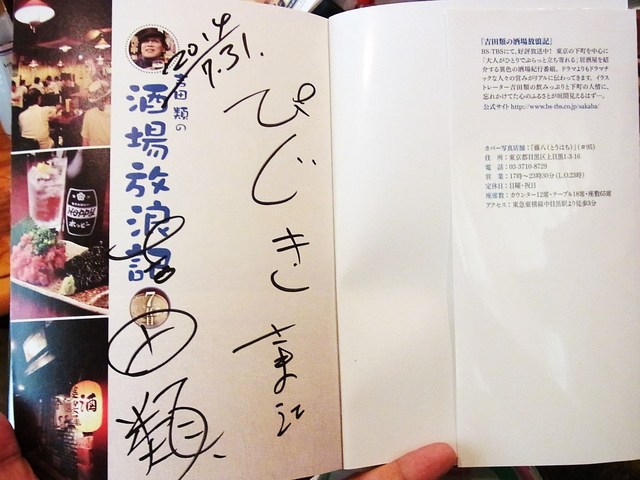 2014
7.31.
吉田類の
酒場放浪記
7杯目
ぴじき
東江
吉田類
HOPPY
ホッピー
酒
『吉田類の酒場放浪記』
BS-TBSにて、好評放送中！ 東京の下町を中心に
「大人がひとりでぶらっと立ち寄れる」居酒屋を紹
介する異色の酒場紀行番組。ドラマよりもドラマチ
ックな人々の営みがリアルに伝わってきます。イラス
トレーター吉田類の飲みっぷりと下町の人情に、
忘れかけてた心のふるさとが垣間見えるはず…。
公式サイト http://www.bs-tbs.co.jp/sakaba/
カバー写真店舗：「藤八（とうはち）」（＃95）
住　所：東京都目黒区上目黒1-3-16
電　話：03-3710-8729
営　業：17時～23時30分（L.O.23時）
定休日：日曜・祝日
座席数：カウンター12席・テーブル18席・座敷65席
アクセス：東急東横線中目黒駅より徒歩3分